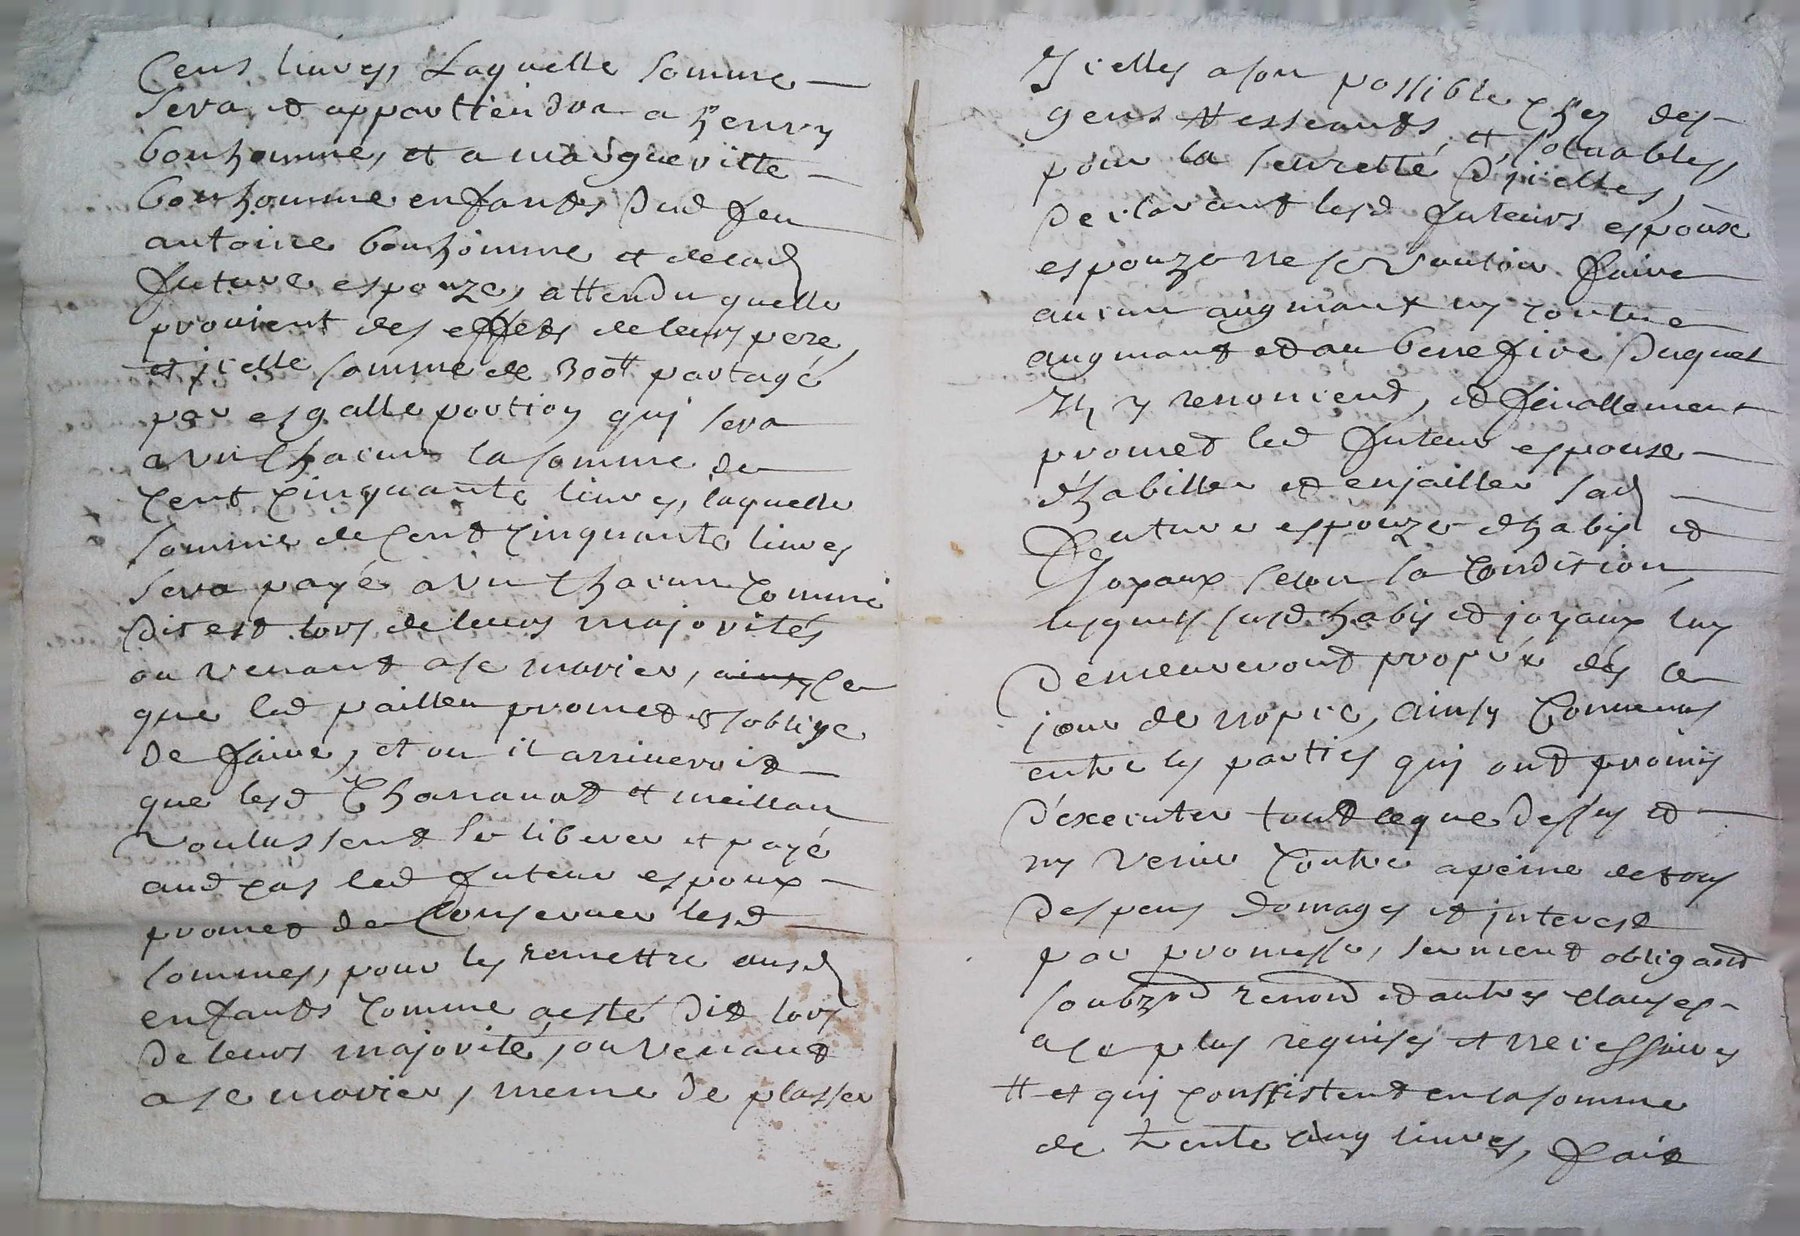 Cens livres, Laquelle somme
sera et appartiendra a henry
bonhomme, et a margueritte
bonhomme enfants Dud feu
antoine bonhomme et delad
future espouze, attendu quelle
provient des effets de leurs pere,
et jcelle somme de 300tt partagé
par esgalle portion quj sera
a un chacun la somme de
Cent Cinquante livres, laquelle
somme de Cent Cinquante livres
sera payé a un chacun Comme
Dit est lors de leurs majorités
ou venant a se marier, ce
que led pailler promet et soblige
de faire, et ou il arriveroit
que lesd et meillan
voulussent se liberer et payé
aud cas led futeur espoux
promet de Conserver lesd
sommes, pour les remettre ausd
enfants Comme a esté Dit lors
de leurs majorité, ou venant
a se marier, meme de plasser
Jcelles a son possible chez des
gens et solvables
pour la seuretté D'jcelles,
Declarant lesd futeurs espoux
espouze ne se vouloir faire
aucun augmant ny contre
augmant et au benefice Duquel
Ils y renoncent, et finallement
promet led futeur espouse
d'habiller et enjailler sad
future espouze d'habis et
Joyaux selon sa Condition,
lesquels susd habis et joyaux luy
Demeureront propre dés le
jour de nopce, ainsy Convenus
entre les parties quj ont promis
d'executer tout ce que Dessus et
ny venir Contre a peine de tous
Despens Domages et jnterest
par promesse, serment obligaōn
soubzon renōn et autres clauses
a ce plus requises et necessaires
# et quj Consistent en la somme
de trente cinq livres, fait